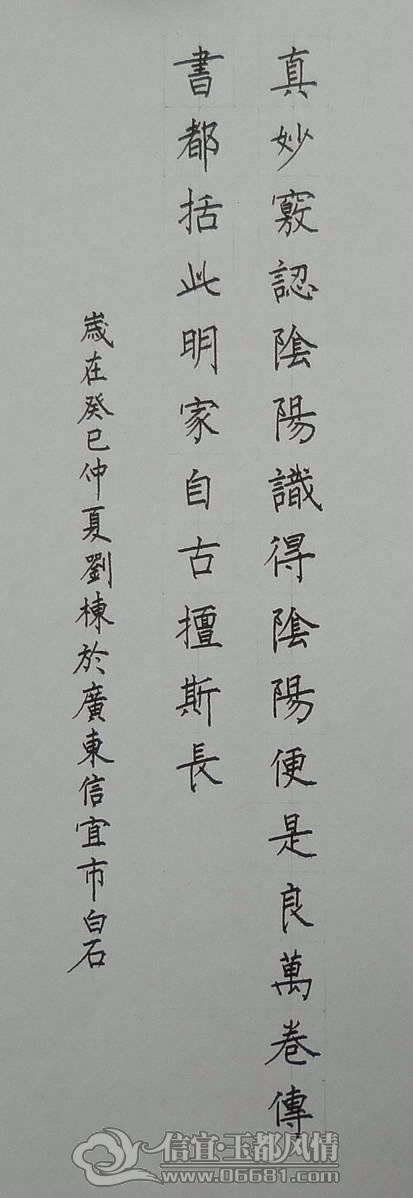 真妙竅認陰陽識得陰陽便是良萬卷傳
書都括此明家自古擅斯長
歲在癸巳仲夏劉棟於廣東信宜市白石
信宜·玉都风情
www.06681.com